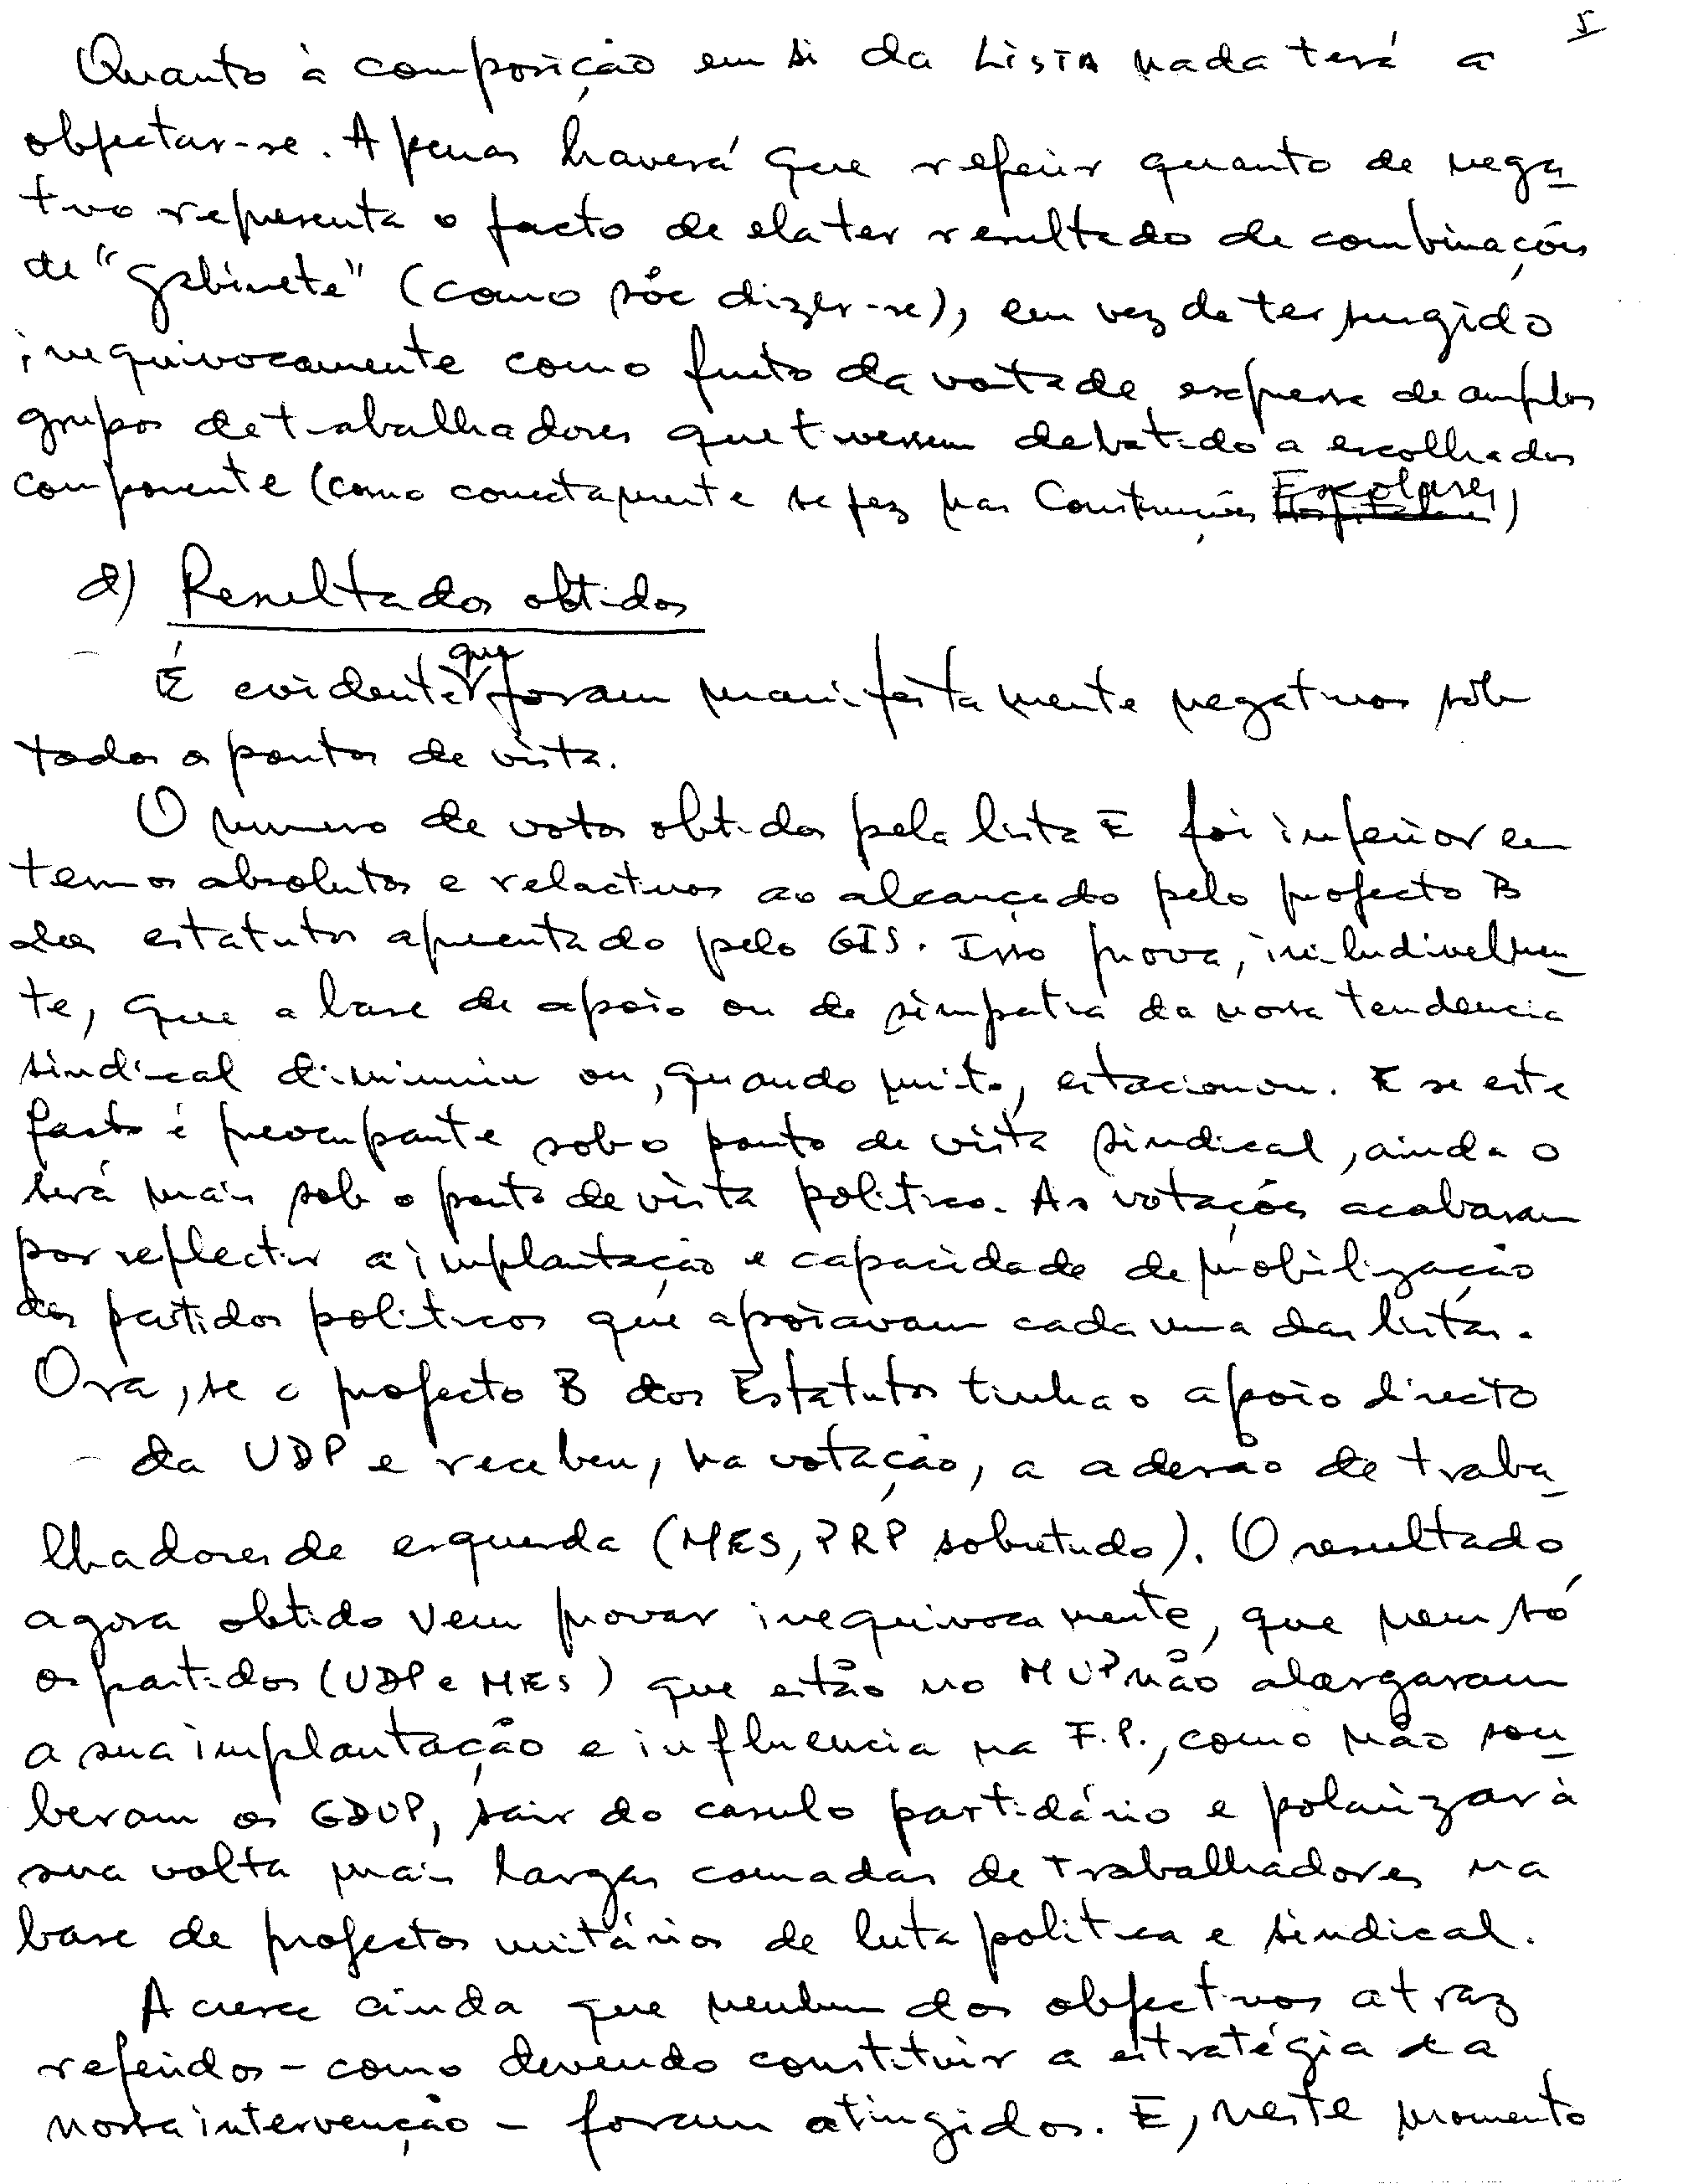 5
Quanto à composição em si da LISTA nada terá a
objectar-se. Apenas haverá que referir quanto de nega-
tivo representa o facto de ela ter resultado de combinações
de "gabinete" (como sóe dizer-se), em vez de ter surgido
inequivocamente como fruto da vontade expressa de amplos
grupos de trabalhadores que tivessem debatido a escolha dos
componente (como correctamente se fez nas Construções Escolares)
d) Resultados obtidos
É evidente que foram manifestamente negativos sob
todos os pontos de vista.
O numero de votos obtidos pela lista E foi inferior em
termos absolutos e relactivos ao alcançado pelo projecto B
dos estatutos apresentado pelo GIS. Isso prova, iniludivelmen-
te, que a base de apoio ou de simpatia da nossa tendencia
sindical diminuiu ou, quando muito, estacionou. E se este
facto é preocupante sob o ponto de vista sindical, ainda o
será mais sob o ponto de vista politico. As votações acabaram
por reflectir a implantação e capacidade de mobilização
dos partidos politicos que apoiavam cada uma das listas.
Ora, se o projecto B dos Estatutos tinha o apoio directo
da UDP e recebeu, na votação, a adesão de traba-
lhadores de esquerda (MES, PRP sobretudo). O resultado
agora obtido vem provar inequivocamente, que nem só
os partidos (UDP e MES) que estão no MUP não alargaram
a sua implantação e influencia na F.P., como não sou-
beram os GDUP, sair do casulo partidário e polarizar à
sua volta mais largas camadas de trabalhadores na
base de projectos unitários de luta politica e sindical.
Acresce ainda que nenhum dos objectivos atraz
referidos - como devendo constituir a estratégia da
nossa intervenção - foram atingidos. E, neste momento